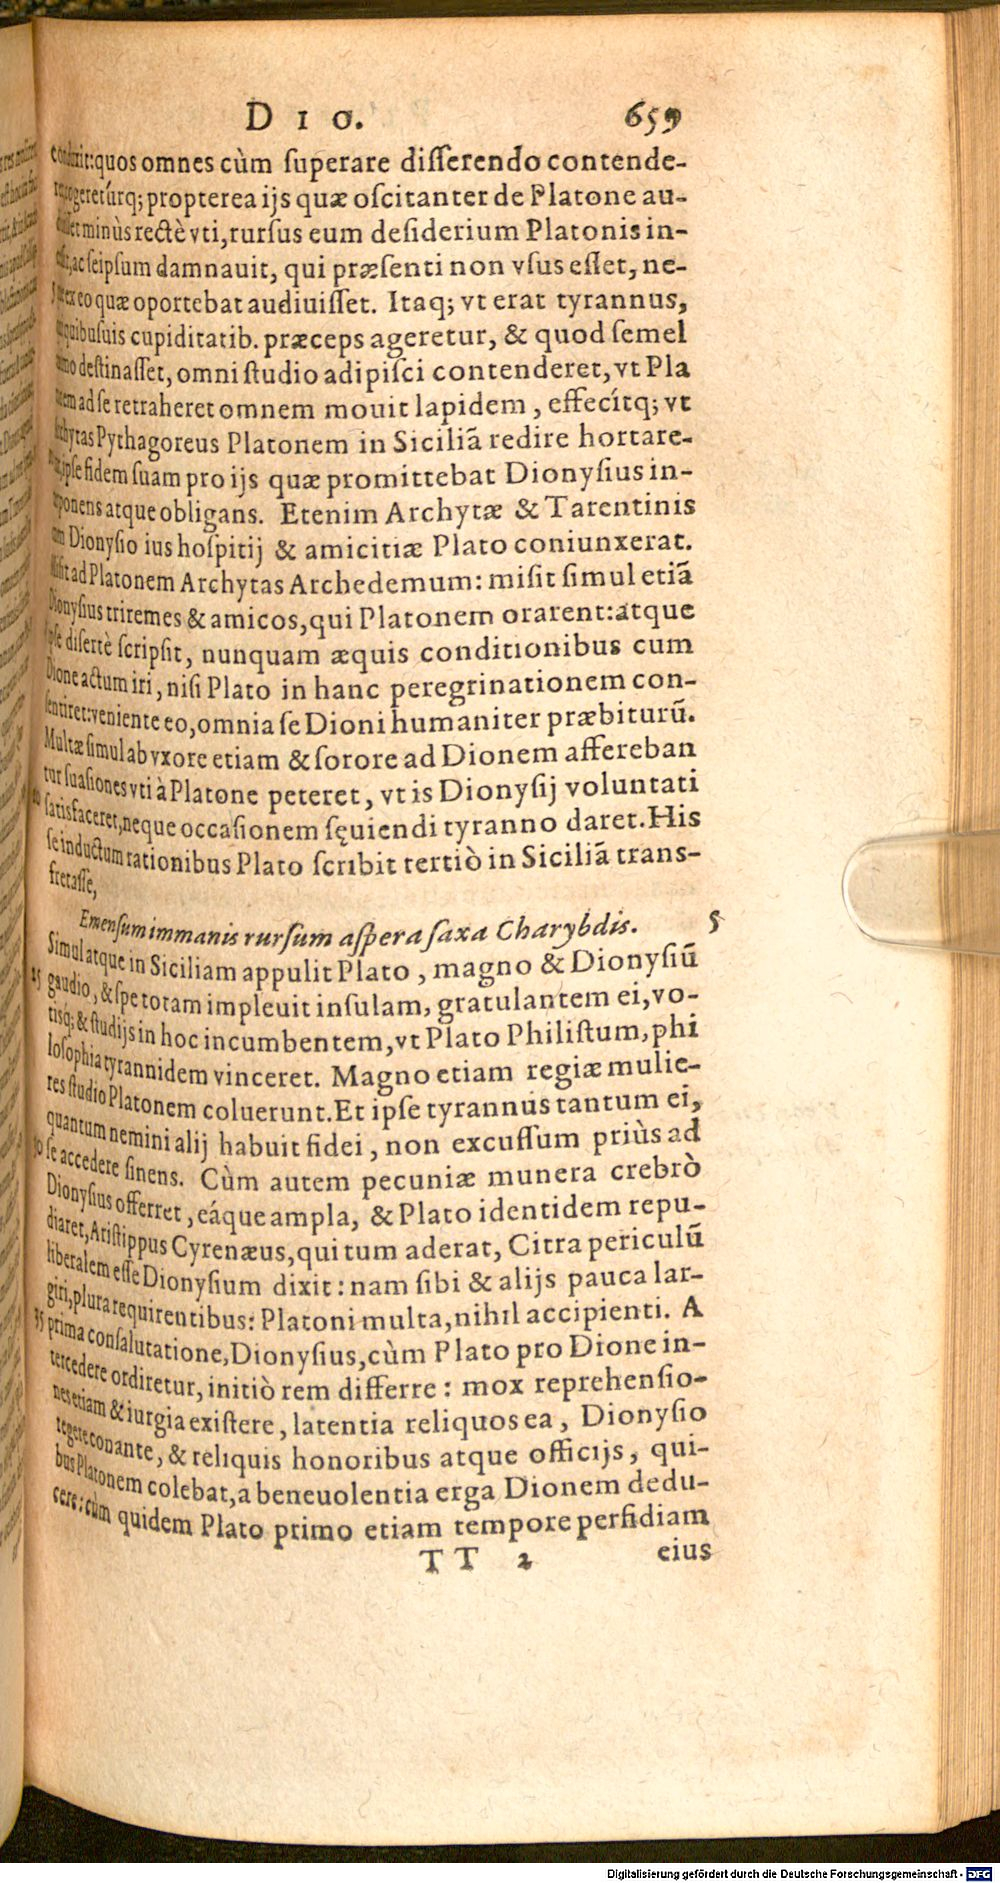 D I O. 659
conduxit:quos omnes cùm ſuperare diſſerendo contende-
cogeretúrq; propterea ijs quæ oſcitanter de Platone au-
minùs rectè vti, rurſus eum deſiderium Platonis in-
ac ſeipſum damnauit, qui præſenti non vſus eſſet, ne-
ex eo quæ oportebat audiuiſſet. Itaq; vt erat tyrannus,
ſuis cupiditatib. præceps ageretur, & quod ſemel
deſtinaſſet, omni ſtudio adipiſci contenderet, vt Pla
ad ſe retraheret omnem mouit lapidem, effecítq; vt
Archytas Pythagoreus Platonem in Siciliā redire hortare-
ipſe fidem ſuam pro ijs quæ promittebat Dionyſius in-
atque obligans. Etenim Archytæ & Tarentinis
Dionyſio ius hoſpitij & amicitiæ Plato coniunxerat.
Miſit ad Platonem Archytas Archedemum: miſit ſimul etiā
Dionyſius triremes & amicos, qui Platonem orarent:atque
ipſe diſertè ſcripſit, nunquam æquis conditionibus cum
Dione actum iri, niſi Plato in hanc peregrinationem con-
ſentiret:veniente eo, omnia ſe Dioni humaniter præbiturū.
Multæ ſimul ab vxore etiam & ſorore ad Dionem affereban
tur ſuaſiones vti à Platone peteret, vt is Dionyſij voluntati
ſatisfaceret, neque occaſionem ſęuiendi tyranno daret. His
ſe inductum rationibus Plato ſcribit tertiò in Siciliā trans-
fretaſſe,
Emenſum immanis rurſum aſpera ſaxa Charybdis. 5
Simul atque in Siciliam appulit Plato, magno & Dionyſiū
25 gaudio, & ſpe totam impleuit inſulam, gratulantem ei, vo-
tisq; & ſtudijs in hoc incumbentem, vt Plato Philiſtum, phi
loſophia tyrannidem vinceret. Magno etiam regiæ mulie-
res ſtudio Platonem coluerunt. Et ipſe tyrannus tantum ei,
quantum nemini alij habuit fidei, non excuſſum priùs ad
30 ſe accedere ſinens. Cùm autem pecuniæ munera crebrò
Dionyſius offerret, eáque ampla, & Plato identidem repu-
diaret, Ariſtippus Cyrenæus, qui tum aderat, Citra periculū
liberalem eſſe Dionyſium dixit: nam ſibi & alijs pauca lar-
giri, plura requirentibus: Platoni multa, nihil accipienti. A
35 prima conſalutatione, Dionyſius, cùm Plato pro Dione in-
tercedere ordiretur, initiò rem differre: mox reprehenſio-
nes etiam & iurgia exiſtere, latentia reliquos ea, Dionyſio
tegere conante, & reliquis honoribus atque officijs, qui-
bus Platonem colebat, a beneuolentia erga Dionem dedu-
cere: cùm quidem Plato primo etiam tempore perfidiam
TT 2 eius
Digitalisierung gefördert durch die Deutsche Forschungsgemeinschaft - DFG